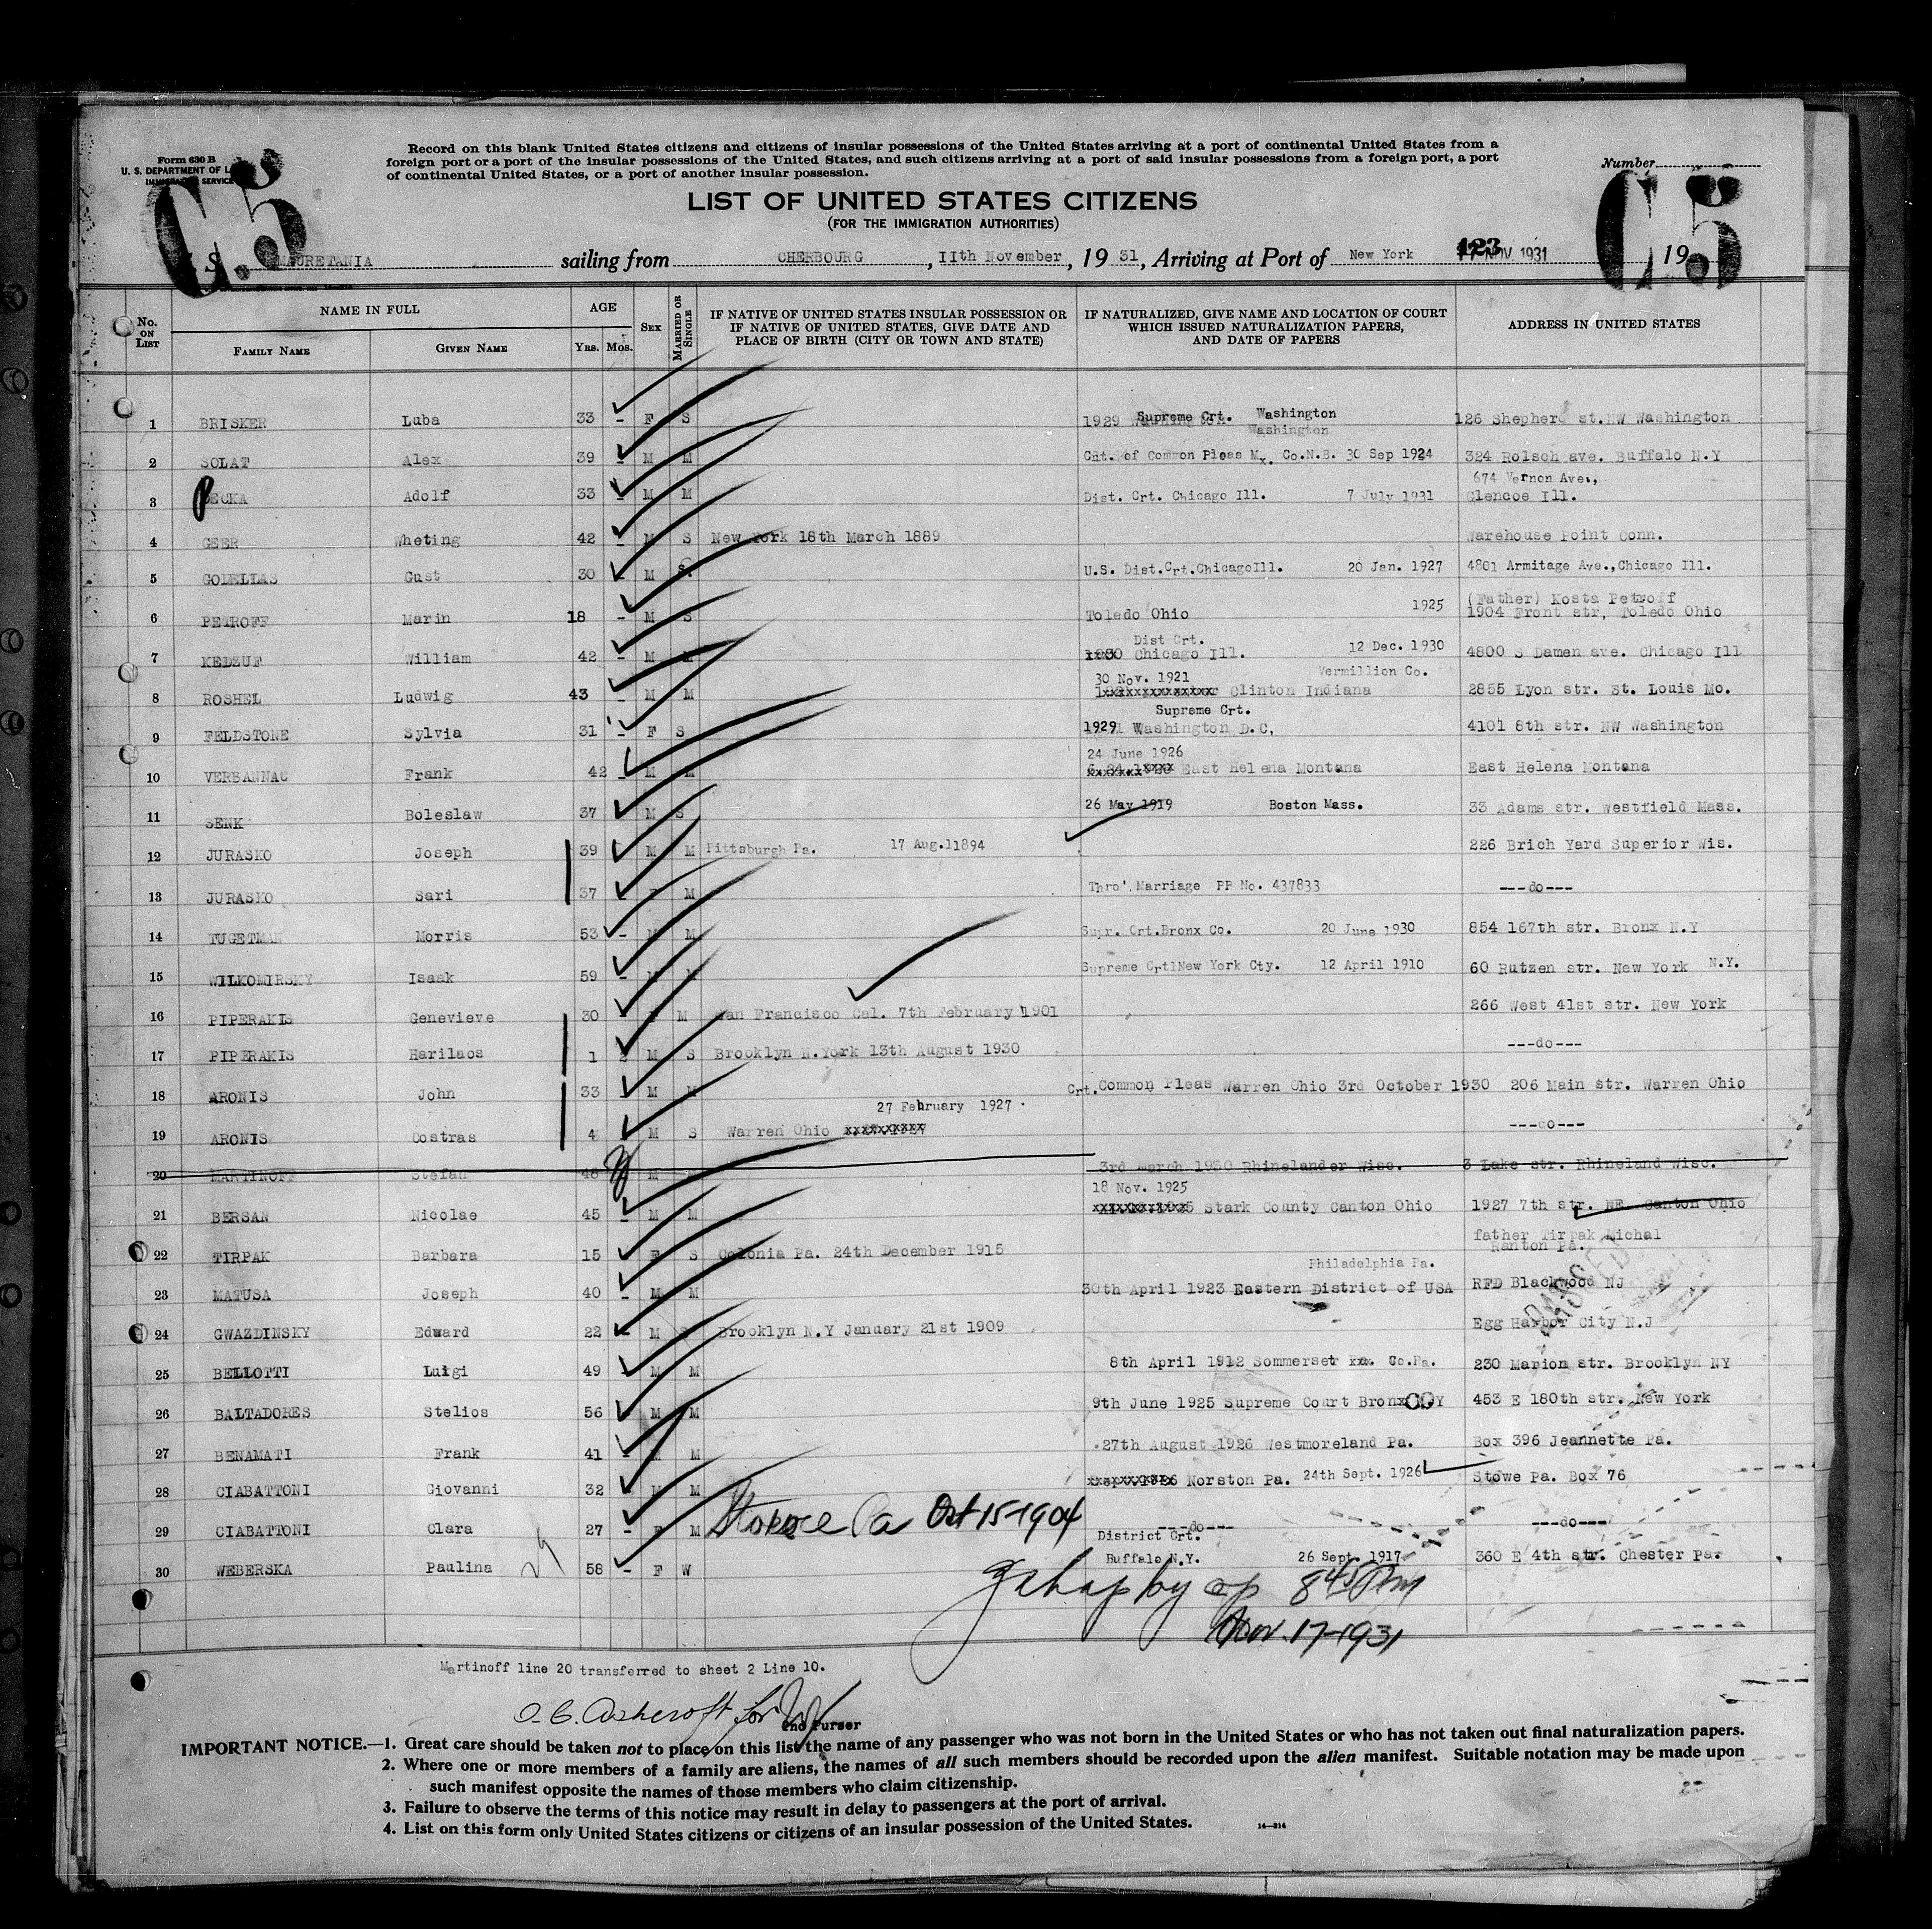 Form 630 B
U. S. DEPARTMENT OF
IMMIGRATION SERVICE
Record on this blank United States citizens and citizens of insular possessions of the United States arriving at a port of continental United States from a
foreign port or a port of the insular possessions of the United States, and such citizens arriving at a port of said insular possessions from a foreign port, a port
of continental United States, or a port of another insular possession.
Number
C.5
C 5
LIST OF UNITED STATES CITIZENS
(FOR THE IMMIGRATION AUTHORITIES)
S. MAURETANIA sailing from CHERBOURG, 11th November, 19 31, Arriving at Port of New York 17 NOV 1931, 19
123
No. on List
NAME IN FULL
FAMILY NAME
GIVEN NAME
AGE
YRS. MOS.
SEX
MARRIED OR SINGLE
IF NATIVE OF UNITED STATES INSULAR POSSESSION OR
IF NATIVE OF UNITED STATES, GIVE DATE AND
PLACE OF BIRTH (CITY OR TOWN AND STATE)
IF NATURALIZED, GIVE NAME AND LOCATION OF COURT
WHICH ISSUED NATURALIZATION PAPERS,
AND DATE OF PAPERS
ADDRESS IN UNITED STATES
1 BRISKER Luba 33 - F S 1929 Supreme Crt. Washington Washington 126 Shepherd st.NW Washington
2 SOLAT Alex 39 - M M Cnt. of Common Pleas Mx. Co.N.B. 30 Sep 1924 324 Rolsch ave. Buffalo N.Y
3 PECKA Adolf 33 - M M Dist. Crt. Chicago Ill. 7 July 1931 674 Vernon Ave., Glencoe Ill.
4 GEER Wheting 42 - M S New York 18th March 1889 Warehouse Point Conn.
5 GODELLAS Gust 30 - M S. U.S. Dist.Crt.ChicagoIll. 20 Jan. 1927 4801 Armitage Ave.,Chicago Ill.
6 PETROFF Marin 18 - M S Toledo Ohio 1925 (Father) Kosta Petroff 1904 Front str, Toledo Ohio
7 KEDZUF William 42 - M M Dist Crt. Chicago Ill. 12 Dec. 1930 4800 S Damen ave. Chicago Ill
8 ROSHEL Ludwig 43 - M M 30 Nov. 1921 Vermillion Co. Clinton Indiana 2855 Lyon str. St. Louis Mo.
9 FELDSTONE Sylvia 31 - F S Supreme Crt. 1929 Washington D.C, 4101 8th str. NW Washington
10 VERBANNAC Frank 42 - M M 24 June 1926 East Helena Montana East Helena Montana
11 SENK Boleslaw 37 M S 26 May 1919 Boston Mass. 33 Adams str. Westfield Mass.
12 JURASKO Joseph 39 M M Pittsburgh Pa. 17 Aug.11894 226 Brich Yard Superior Wis.
13 JURASKO Sari 37 F M Thro' Marriage PP No. 437833 ---do---
14 TUGETMAN Morris 53 - M M Supr. Crt.Bronx Co. 20 June 1930 854 167th str. Bronx N.Y
15 WILKOMIRSKY Isaak 59 - M M Supreme CrtlNew York Cty. 12 April 1910 60 Rutzen str. New York N.Y.
16 PIPERAKIS Genevieve 30 F M San Francisco Cal. 7th February 1901 266 West 41st str. New York
17 PIPERAKIS Harilaos 1 2 M S Brooklyn N.York 13th August 1930 ---do---
18 ARONIS John 33 M M Crt.Common Pleas Warren Ohio 3rd October 1930 206 Main str. Warren Ohio
19 ARONIS Costras 4 M S Warren Ohio 27 February 1927 ---do---
20 MARTINOFF Stefan 48 M 3rd march 1930 Rhinelander Wisc. 3 Lake str. Rhineland Wisc.
21 BERSAN Nicolae 45 - M M 18 Nov. 1925 Stark County Canton Ohio 1927 7th str. NE Canton Ohio
22 TIRPAK Barbara 15 F S Colonia Pa. 24th December 1915 father Tirpak Michal Ranton Pa.
23 MATUSA Joseph 40 - M M Philadelphia Pa. 30th April 1923 Eastern District of USA RFD Blackwood NJ
24 GWAZDINSKY Edward 22 - M S Brooklyn N.Y January 21st 1909 Egg Harbor City N.J
25 BELLOTTI Luigi 49 M M 8th April 1912 Sommerset Co.Pa. 230 Marion str. Brooklyn NY
26 BALTADORES Stelios 56 M M 9th June 1925 Supreme Court Bronx CO Y 453 E 180th str. New York
27 BENAMATI Frank 41 - M M 27th August 1926 Westmoreland Pa. Box 396 Jeannette Pa.
28 CIABATTONI Giovanni 32 M M Norston Pa. 24th Sept. 1926 Stowe Pa. Box 76
29 CIABATTONI Clara 27 - F M Stowe Pa Oct 15-1904 ---do--- ---do---
30 WEBERSKA Paulina 29 58 - F W District Crt. Buffalo N.Y. 26 Sept. 1917 360 E 4th str. Chester Pa.
8 45 Pm
Nov. 17-1931
Martinoff line 20 transferred to sheet 2 Line 10.
Ashcroft for
2nd Purser
IMPORTANT NOTICE.—1. Great care should be taken not to place on this list the name of any passenger who was not born in the United States or who has not taken out final naturalization papers.
2. Where one or more members of a family are aliens, the names of all such members should be recorded upon the alien manifest. Suitable notation may be made upon
such manifest opposite the names of those members who claim citizenship.
3. Failure to observe the terms of this notice may result in delay to passengers at the port of arrival.
4. List on this form only United States citizens or citizens of an insular possession of the United States.
14—214